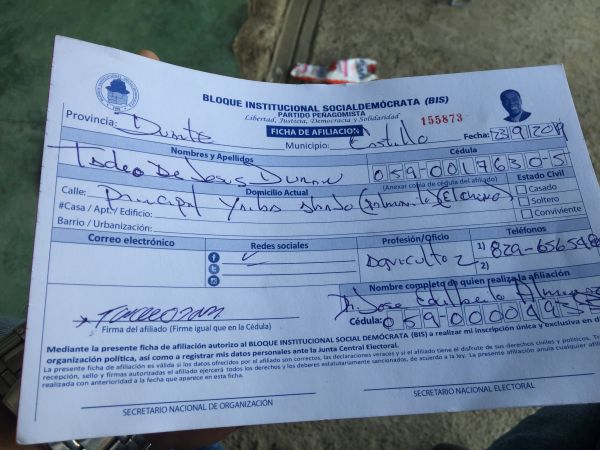 BLOQUE INSTITUCIONAL SOCIALDEMÓCRATA (BIS)
PARTIDO PEÑAGOMISTA
Libertad, Justicia, Democracia y Solidaridad
155873
FICHA DE AFILIACIÓN
Provincia: Duarte Municipio: Castillo Fecha: 23 9 20
Nombres y Apellidos Cédula
Tadeo De Jesus Duran 059-0017630-5
Domicilio Actual (Anexar copia de cédula del afiliado) Estado Civil
Calle: Principal
#Casa / Apt. / Edificio:
Barrio / Urbanización:
Casado
Soltero
Conviviente
Correo electrónico Redes sociales Profesión/Oficio Teléfonos
Agricultor 1) 829-656548
2)
Nombre completo de quien realiza la afiliación
Dr. Jose
Firma del afiliado (Firme igual que en la Cédula) Cédula: 059-0000493
Mediante la presente ficha de afiliación autorizo al BLOQUE INSTITUCIONAL SOCIALDEMÓCRATA (BIS) a realizar mi inscripción única y exclusiva en d
organización política, así como a registrar mis datos personales ante la Junta Central Electoral.
La presente ficha de afiliación es válida si los datos ofrecidos por el afiliado son correctos, las declaraciones veraces y si el afiliado tiene el disfrute de sus derechos civiles y políticos. T
recepción, sello y firmas autorizadas el afiliado ejercerá todos los derechos y los deberes estatutariamente sancionados, de acuerdo a la ley. La presente afiliación anula cualquier afilia
realizada con anterioridad a la fecha que aparece en esta ficha.
SECRETARIO NACIONAL DE ORGANIZACIÓN SECRETARIO NACIONAL ELECTORAL